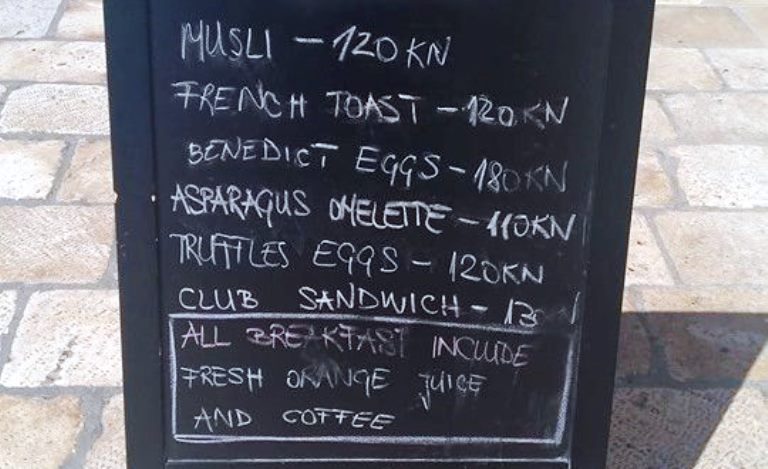 MUSLI - 120 KN
FRENCH TOAST - 120 KN
BENEDICT EGGS - 180 KN
ASPARAGUS OMELETTE - 110KN
TRUFFLES EGGS - 120KN
CLUB SANDWICH -
ALL BREAKFAST INCLUDE
FRESH ORANGE JUICE
AND COFFEE